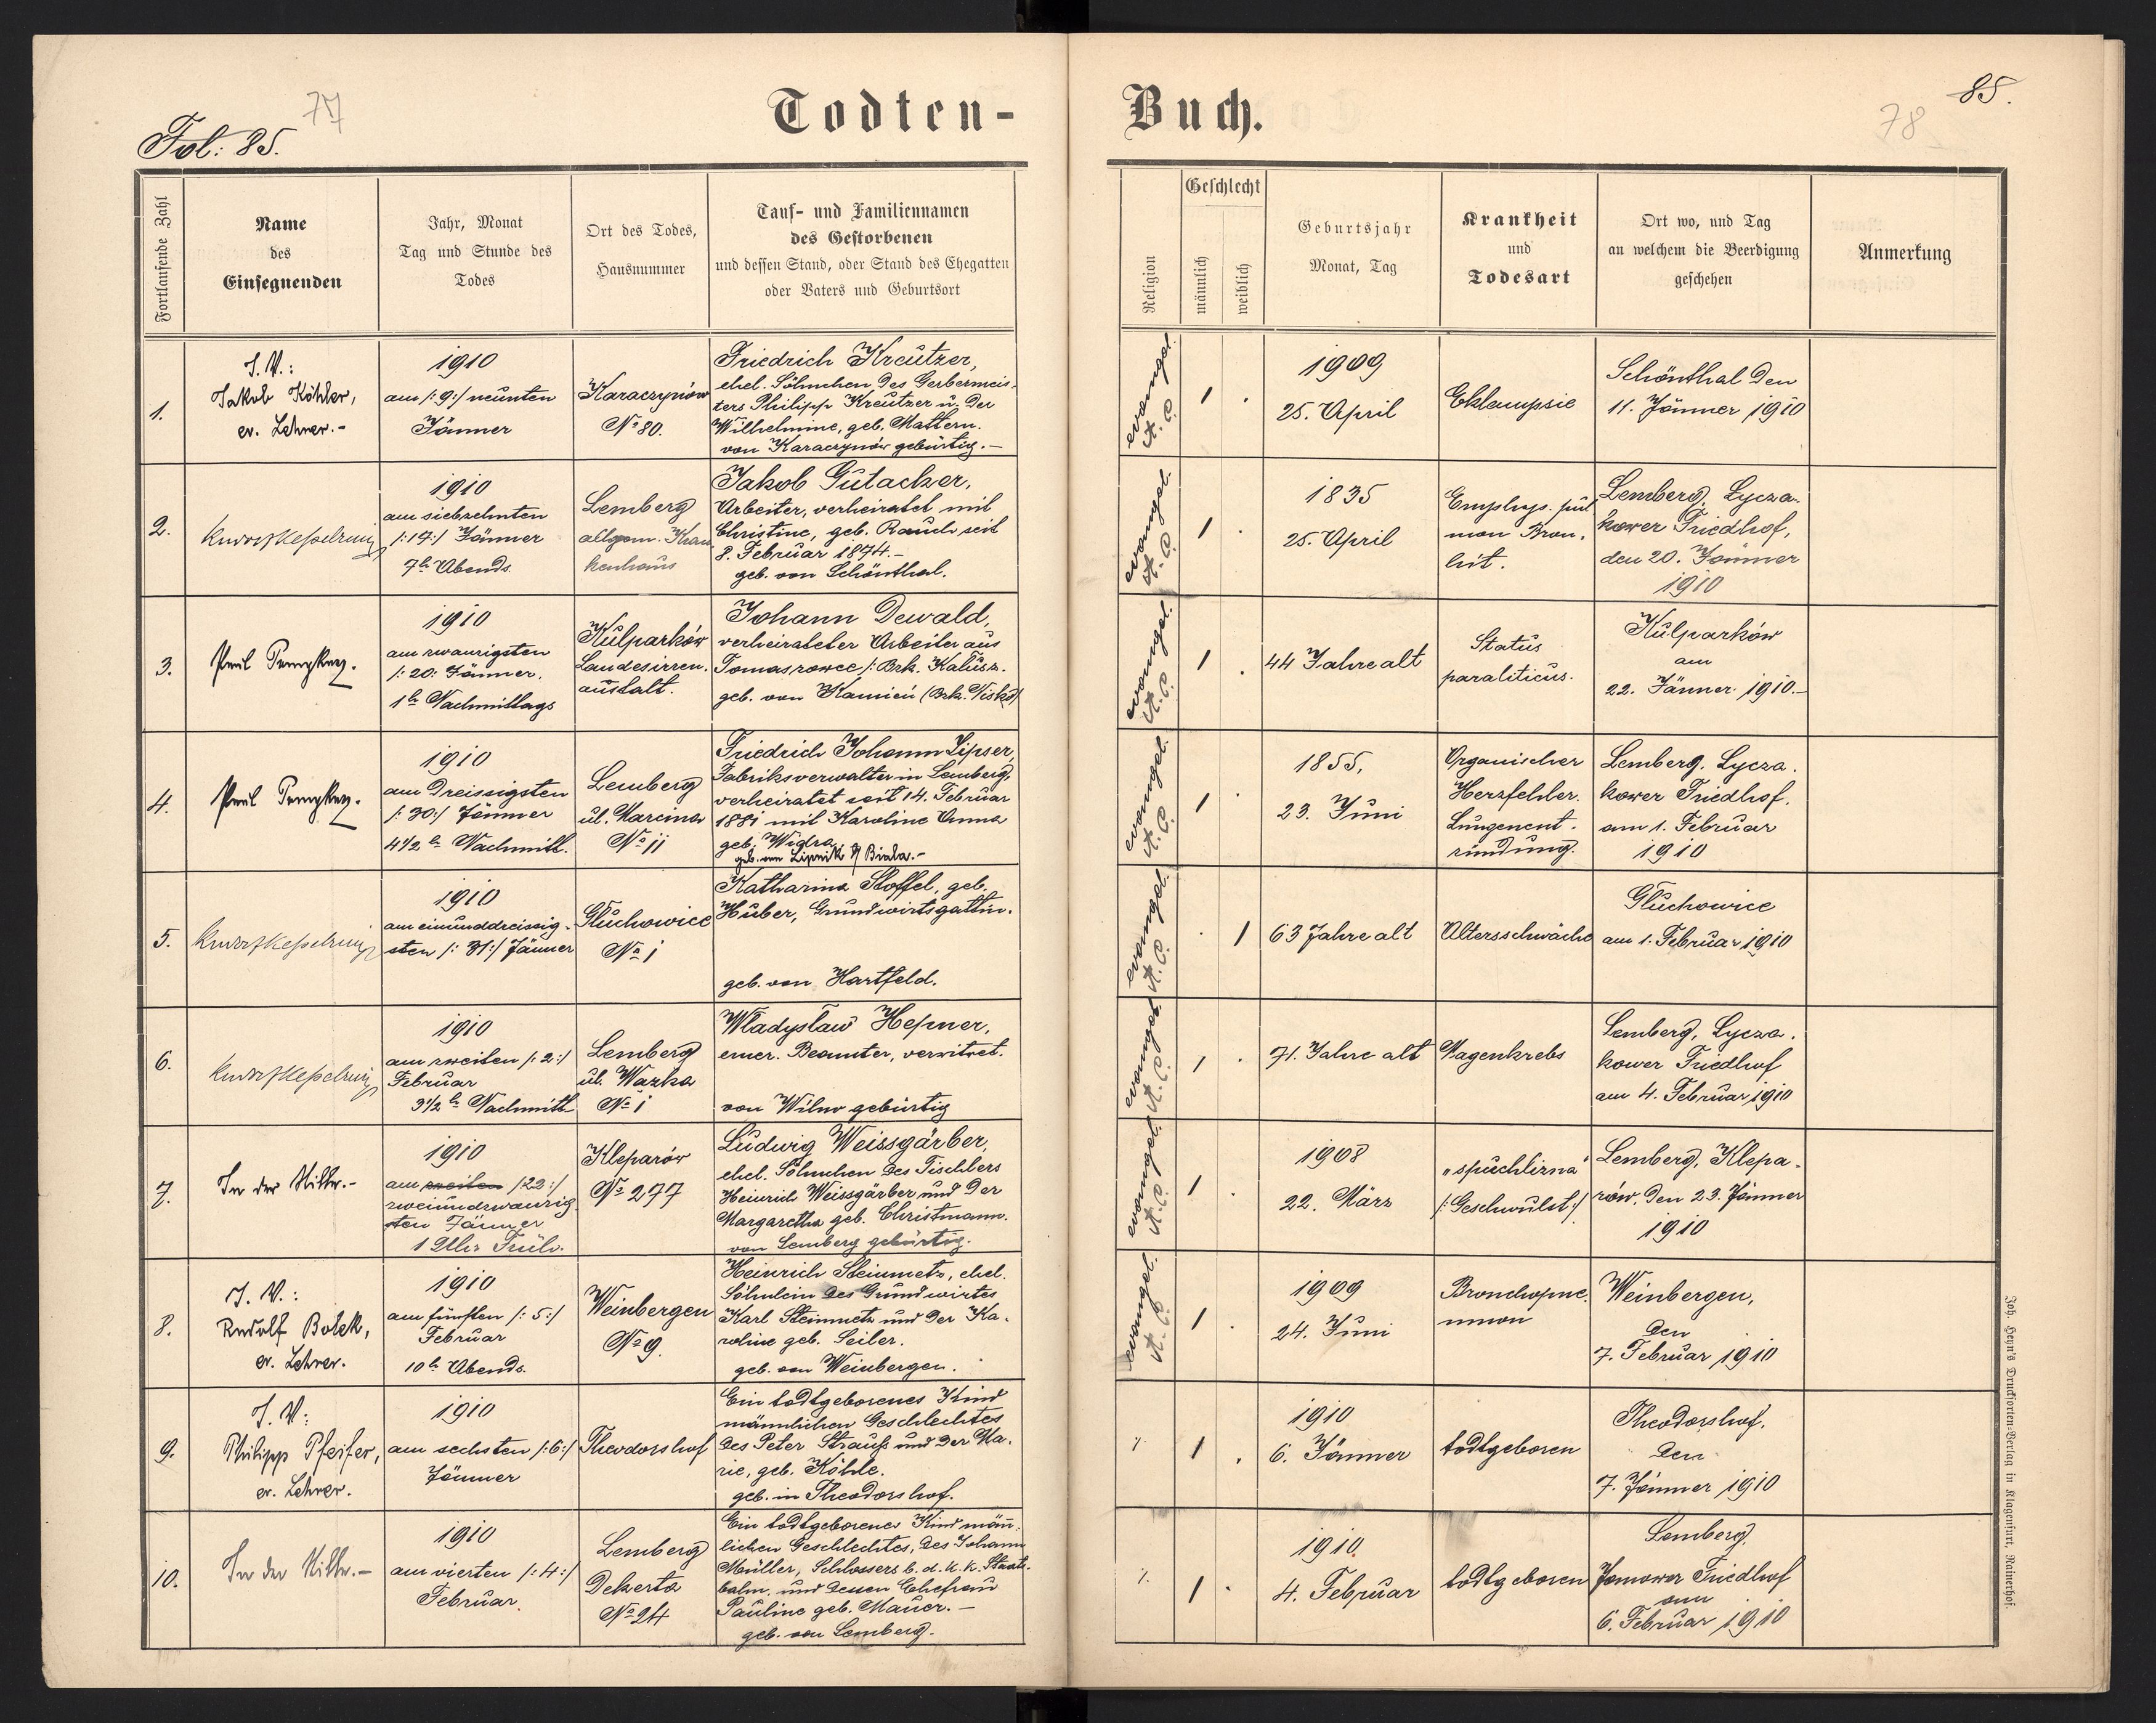 77
Fol: 85.
Todten-
Fortlaufende Zahl
Name
des
Einsegnenden
Jahr, Monat
Tag und Stunde des
Todes
Ort des Todes,
Hausnummer
Tauf- und Familiennamen
des Gestorbenen
und dessen Stand, oder Stand des Ehegatten
oder Vaters und Geburtsort
1.
I. V.:
Jakob Köhler,
ev. Lehrer.-
1910
am /:9:/ neunten
Jänner
Karaczynów
No 80.
Friedrich Kreutzer,
ehel. Söhnchen des Gerbermeis-
ters Philipp Kreutzer u. der
Wilhelmine, geb. Mattern.
von Karaczynów gebürtig.-
2.
1910
am siebzehnten
/:17:/ Jänner
7h Abends.
Lemberg
allgem. Kran
kenhaus
Jakob Gutacker,
Arbeiter, verheiratet mit
Christine, geb. Rauch seit
8. Februar 1874.-
geb. von Schönthal.
3.
1910
am zwanzigsten
/:20: Jänner.
1h Nachmittags
Kulparków
Landesirren.
anstalt.
Johann Dewald,
verheirateter Arbeiter aus
Tomaszowce /: Bzk. Kalusz.
geb. von Kamień (Bzk. Nisko)
4.
1910
am Dreissigsten
/:30:/ Jänner
4 1/2 h Nachmitt.
Lemberg
ul. Marcina
No 11
Friedrich Johann Lipser,
Fabriksverwalter in Lemberg,
verheiratet seit 14. Februar
1881 mit Karoline Anna
geb.
geb. von Lipnik b/ Biala.-
5.
1910
am einunddreissig-
sten /: 31:/ Jänner
Gluchowice
No 1
Katharina Stoffel, geb.
Huber, Grundwirtsgattin.
geb. von Hartfeld.
6.
1910
am zweiten /:2:/
Februar
3 1/2 h Nachmitt
Lemberg
ul. Wazka
No 1
Wladyslaw Hepner,
emer. Beamter, verwitwet.
von Wilno gebürtig
7.
In der Stille.-
1910
am zweiten /22:/
zweiundzwanzig
sten Jänner
1 Uhr Früh.
Kleparów
No 277
Ludwig Weissgärber,
ehel. Söhnchen des Tischlers
Heinrich Weissgärber und der
Margaretha geb. Christmann.
von Lemberg gebürtig.
8.
I. V.:
Rudolf Bolek,
ev. Lehrer.
1910
am fünften /: 5:/
Februar
10h Abends.
Weinbergen
No 9.
Heinrich Steinmetz, ehel.
Söhnlein des Grundwirtes
Karl Steinmetz und der Ka-
roline geb. Seiler.
geb. von Weinbergen.
9.
I. V:
Philipp Pfeifer,
ev. Lehrer.
1910
am sechsten /:6:/
Jänner
Theodorshof
Ein todtgeborenes Kind
männlichen Geschlechtes
des Peter Strauß und der Ma-
rie, geb. Köhle.
geb. in Theodorshof.
10.
In der Stille.-
1910
am vierten /:4:/
Februar.
Lemberg
Dekerta
No 24
Ein todtgeborenes Kind män̄-
lichen Geschlechtes, des Johann
Müller, Schlossers b. d. k. k. Staats-
bahn, und dessen Ehefrau
Pauline geb. Mauer.-
geb. von Lemberg.
85.
78
Buch.
Religion
Geschlecht
männlich
weiblich
Geburtsjahr
Monat, Tag
Krankheit
und
Todesart
Ort wo, und Tag
an welchem die Beerdigung
geschehen
Anmerkung
evangel.
A. C.
1
1909
25. April
Eklampsie
Schönthal den
11. Jänner 1910
evangel.
A. C.
1
1835
25. April
Lemberg, Lycza-
kower Friedhof,
den 20. Jänner
1910
evangel.
A. C.
1
44 Jahre alt
Status
paraliticus.
Kulparków
am
22. Jänner 1910.-
evangel.
A. C.
1
1855,
23. Juni
Organischer
Herzfehler.
Lungenent-
zündung.
Lemberg. Lycza-
kower Friedhof.
am 1. Februar
1910
evangel.
A. C.
1
63 Jahre alt
Altersschwäche
Gluchowice
am 1. Februar 1910
evangel.
A. C.
1
71. Jahre alt
Magenkrebs
Lemberg, Lycza-
kower Friedhof
am 4. Februar 1910
evangel.
A. C.
1
1908
22. März
„spuchlizna"
/: Geschwulst:/
Lemberg, Klepa-
rów. den 23. Jänner
1910
evangel.
A. C.
1
1909
24. Juni
Bronchopneu
monon
Weinbergen,
den
7. Februar 1910
1
1910
6. Jänner
todtgeboren
Theodorshof.
den
7. Jänner 1910
1
1910.
4. Februar
todtgeboren
Lemberg.
Janower Friedhof
am
6. Februar 1910
Joh. Heyn's Drucksorten-Verlag in Klagenfurt, Rainerhof.